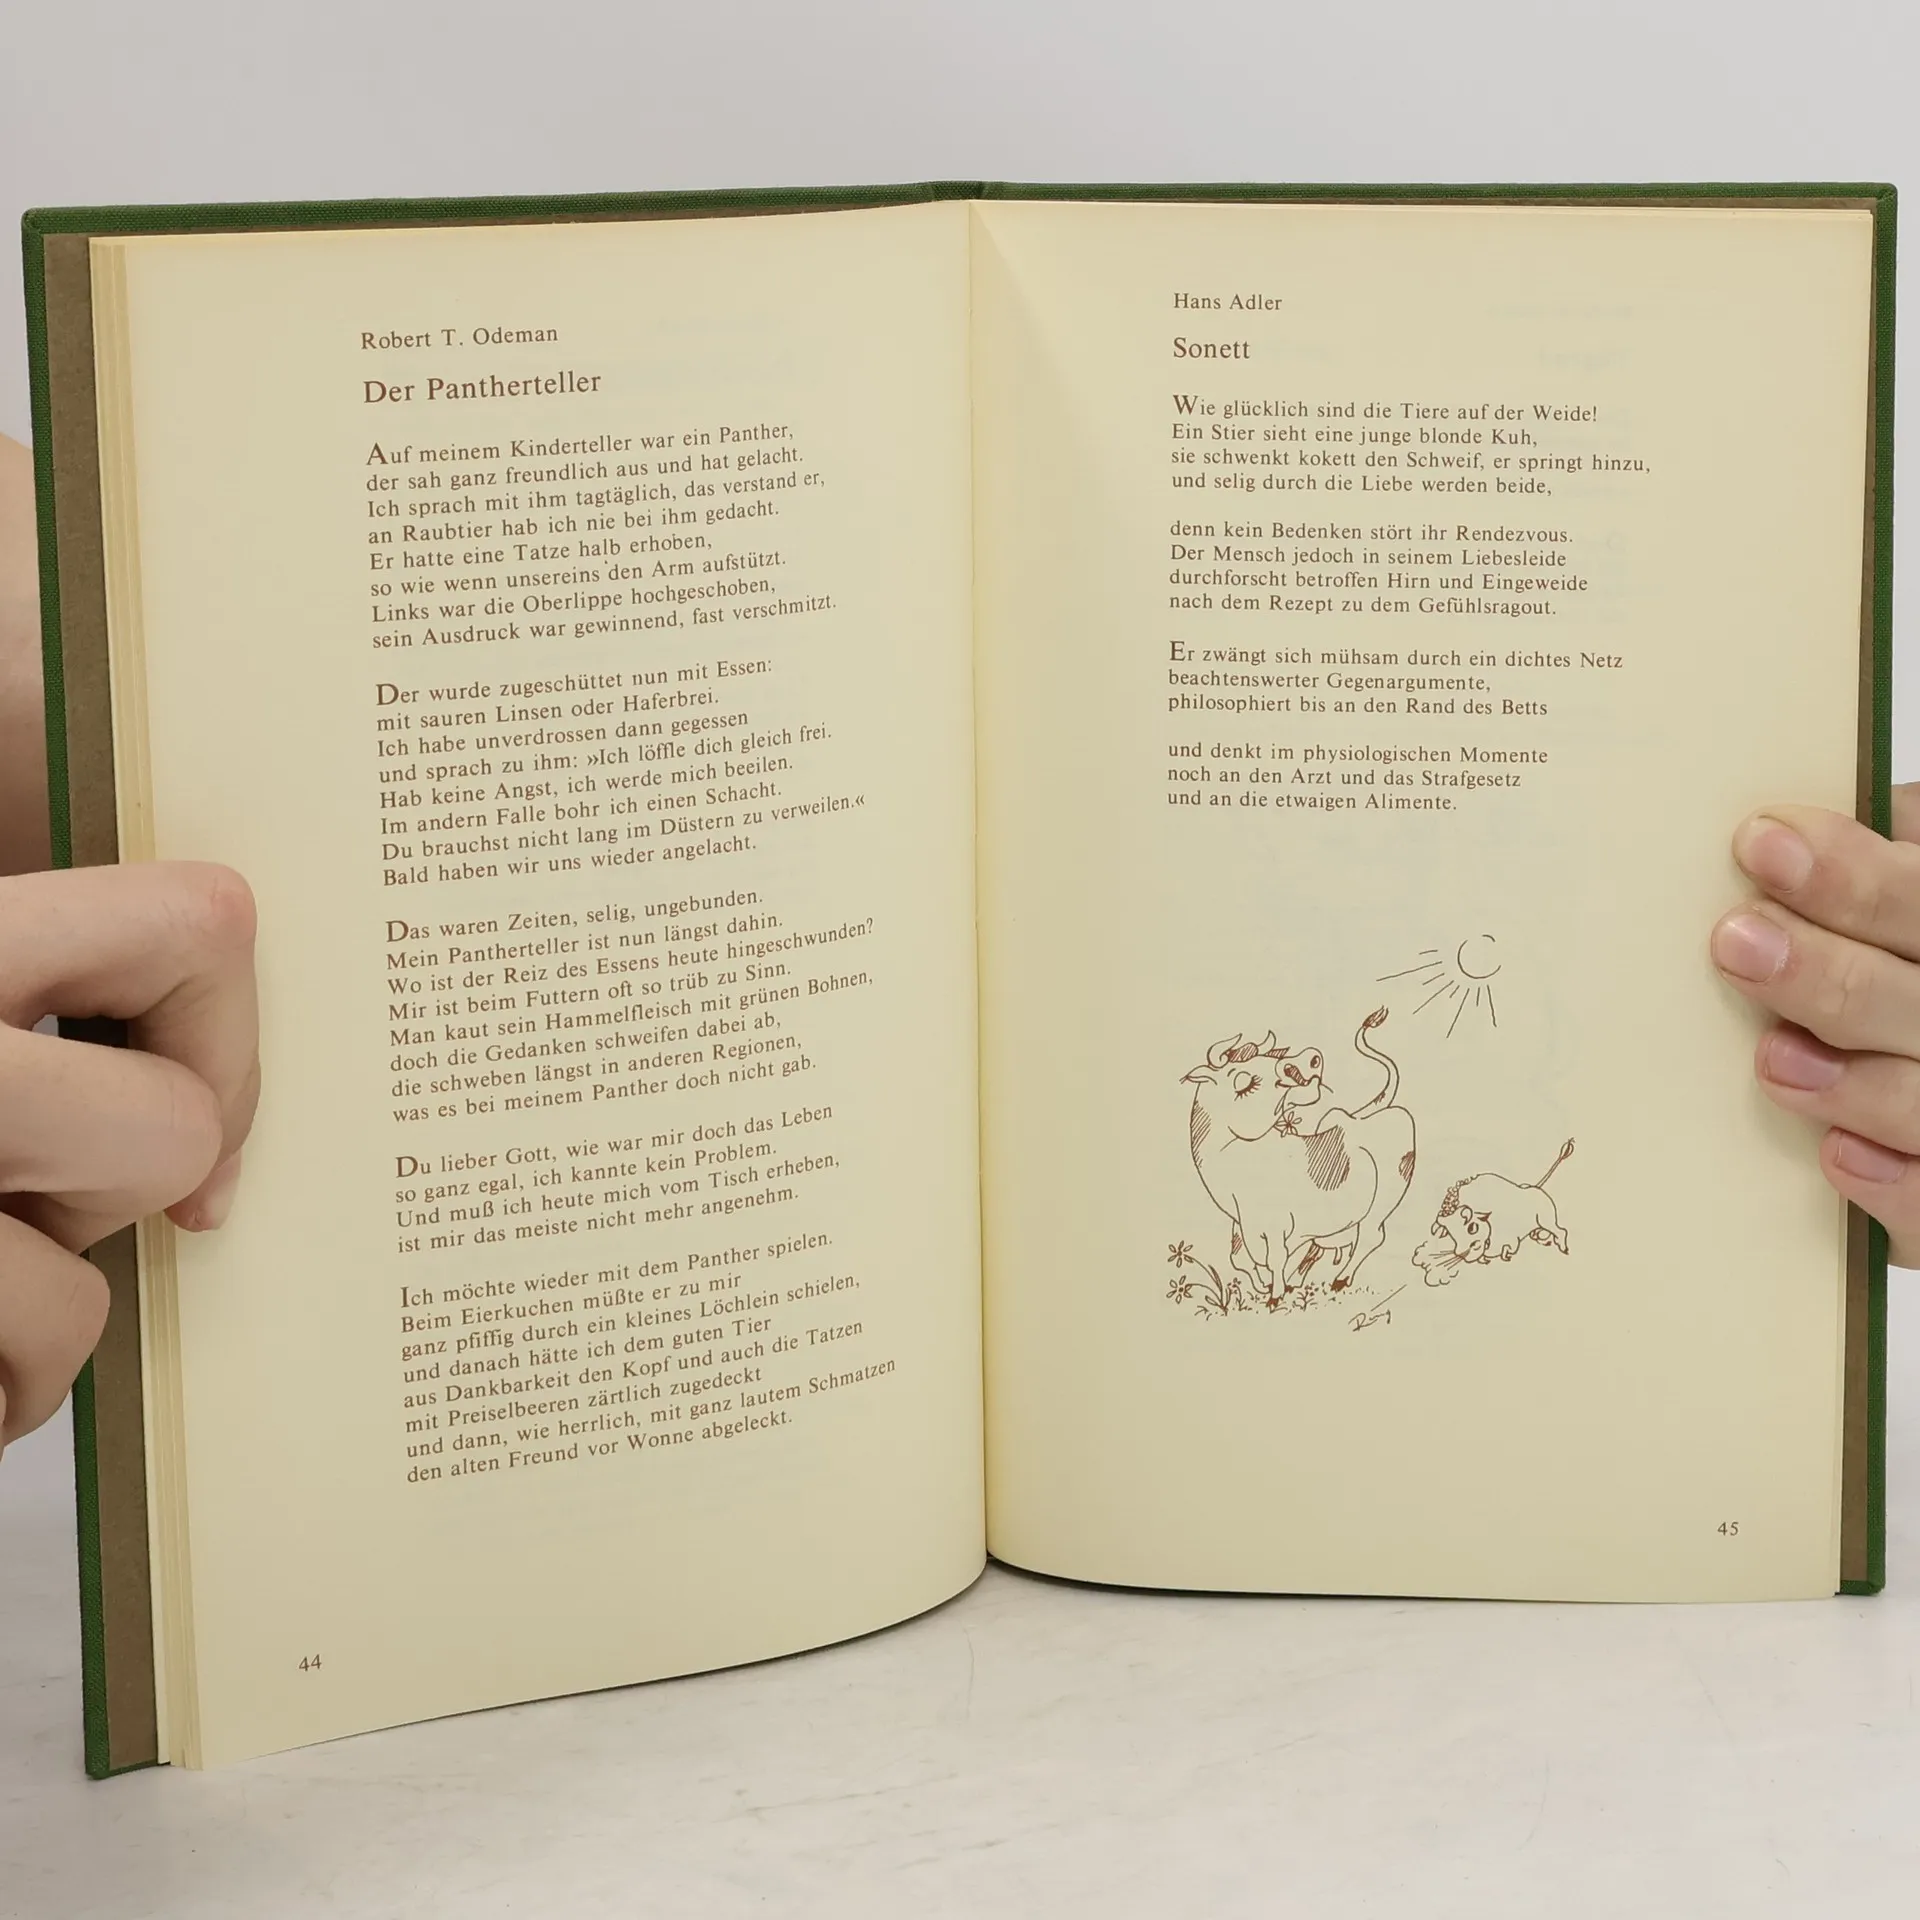 Robert T. Odeman
Der Pantherteller
Auf meinem Kinderteller war ein Panther,
der sah ganz freundlich aus und hat gelacht.
Ich sprach mit ihm tagtäglich, das verstand er,
an Raubtier hab ich nie bei ihm gedacht.
Er hatte eine Tatze halb erhoben,
so wie wenn unsereins den Arm aufstützt.
Links war die Oberlippe hochgeschoben,
sein Ausdruck war gewinnend, fast verschmitzt.
Der wurde zugeschüttet nun mit Essen:
mit sauren Linsen oder Haferbrei.
Ich habe unverdrossen dann gegessen
und sprach zu ihm: »Ich löffle dich gleich frei.
Hab keine Angst, ich werde mich beeilen.
Im andern Falle bohr ich einen Schacht.
Du brauchst nicht lang im Düstern zu verweilen.«
Bald haben wir uns wieder angelacht.
Das waren Zeiten, selig, ungebunden.
Mein Pantherteller ist nun längst dahin.
Wo ist der Reiz des Essens heute hingeschwunden?
Mir ist beim Futtern oft so trüb zu Sinn.
Man kaut sein Hammelfleisch mit grünen Bohnen,
doch die Gedanken schweifen dabei ab,
die schweben längst in anderen Regionen,
was es bei meinem Panther doch nicht gab.
Du lieber Gott, wie war mir doch das Leben
so ganz egal, ich kannte kein Problem.
Und muß ich heute mich vom Tisch erheben,
ist mir das meiste nicht mehr angenehm.
Ich möchte wieder mit dem Panther spielen.
Beim Eierkuchen müßte er zu mir
ganz pfiffig durch ein kleines Löchlein schielen,
und danach hätte ich dem guten Tier
aus Dankbarkeit den Kopf und auch die Tatzen
mit Preiselbeeren zärtlich zugedeckt
und dann, wie herrlich, mit ganz lautem Schmatzen
den alten Freund vor Wonne abgeleckt.
44
Hans Adler
Sonett
Wie glücklich sind die Tiere auf der Weide!
Ein Stier sieht eine junge blonde Kuh,
sie schwenkt kokett den Schweif, er springt hinzu,
und selig durch die Liebe werden beide,
denn kein Bedenken stört ihr Rendezvous.
Der Mensch jedoch in seinem Liebesleide
durchforscht betroffen Hirn und Eingeweide
nach dem Rezept zu dem Gefühlsragout.
Er zwängt sich mühsam durch ein dichtes Netz
beachtenswerter Gegenargumente,
philosophiert bis an den Rand des Betts
und denkt im physiologischen Momente
noch an den Arzt und das Strafgesetz
und an die etwaigen Alimente.
45